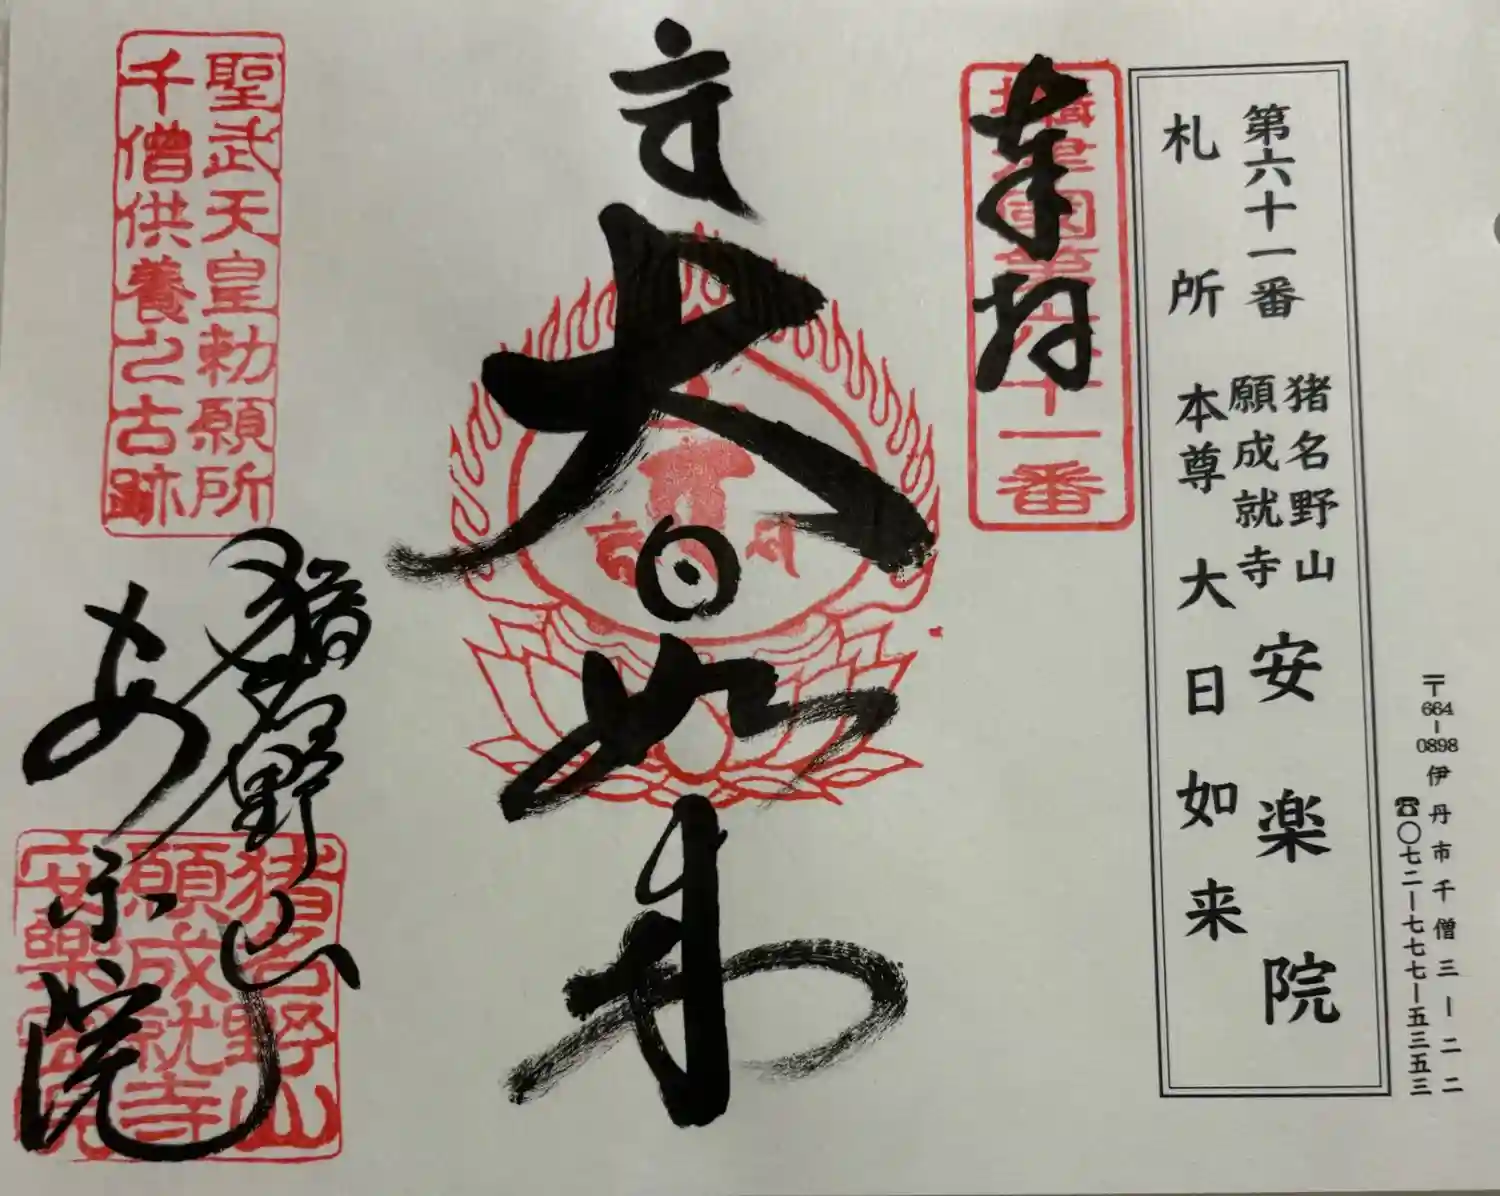 〒664-0898 伊丹市千僧三ー二二
☎〇七二ー七七七ー五三五三
第六十一番 猪名野山 願成就寺 安楽院
札所 本尊 大日如来
奉拝
摂津國第六十一番
大日如来
聖武天皇勅願所
千僧供養之古跡
猪名野山
安楽院
猪名野山
願成就寺
安樂院